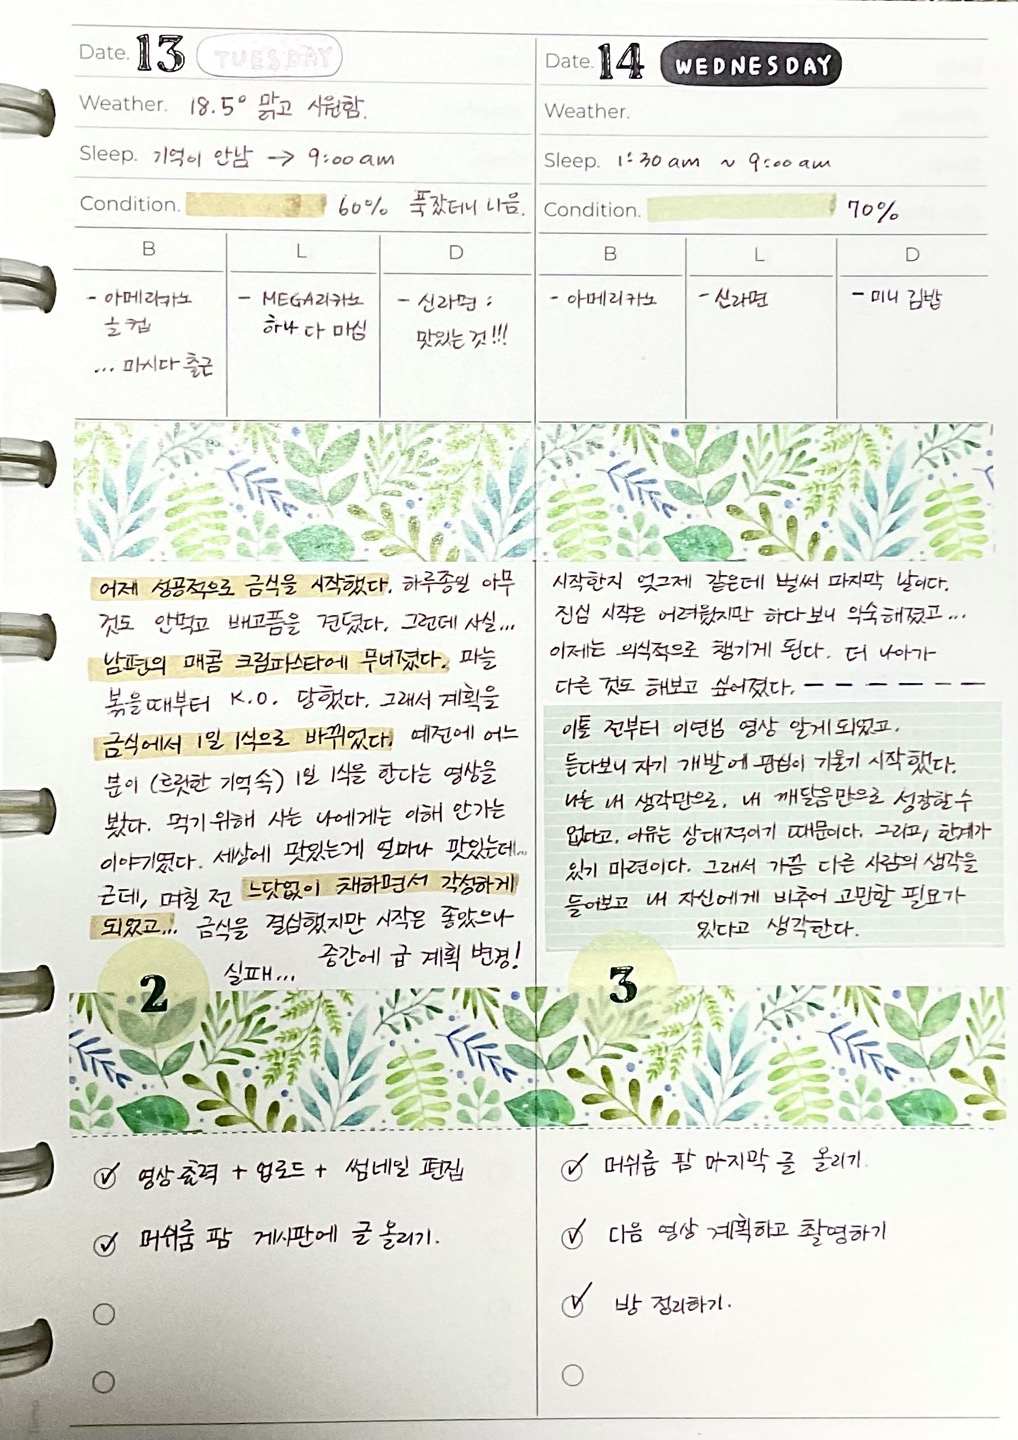 Date. 13 TUESDAY
Weather. 18.5° 맑고 시원함.
Sleep. 기억이 안남 → 9:00 am
Condition. 60% 푹 잤더니 나음.
B L D
- 아메리카노
숏컵
... 마시다 출근
- MEGA리카노
하나 다 마심
- 신라면 :
맛있는 것!!!
어제 성공적으로 금식을 시작했다. 하루종일 아무
것도 안먹고 배고픔을 견뎠다. 그런데 사실...
남편의 매콤 크림파스타에 무너졌다. 마늘
볶을때부터 K.O. 당했다. 그래서 계획을
금식에서 1일 1식으로 바뀌었다. 예전에 어느
분이 (흐릿한 기억속) 1일 1식을 한다는 영상을
봤다. 먹기위해 사는 나에게는 이해 안가는
이야기였다. 세상에 맛있는게 얼마나 맛있는데...
근데, 며칠 전 느닷없이 채하면서 각성하게
되었고... 금식을 결심했지만 시작은 좋았으나
중간에 급 계획 변경!
실패...
2
영상출력 + 업로드 + 썸네일 편집
머쉬룸 팜 게시판에 글 올리기.
Date. 14 WEDNESDAY
Weather.
Sleep. 1:30 am ~ 9:00 am
Condition. 70%
B L D
- 아메리카노
- 신라면
- 미니 김밥
시작한지 엊그제 같은데 벌써 마지막 날이다.
진심 시작은 어려웠지만 하다보니 익숙해졌고...
이제는 의식적으로 챙기게 된다. 더 나아가
다른 것도 해보고 싶어졌다.
이틀 전부터 이연님 영상 알게되었고.
듣다보니 자기 개발에 관심이 기울기 시작했다.
나는 내 생각만으로, 내 깨달음만으로 성장할 수
없다고, 이유는 상대적이기 때문이다. 그리고, 한계가
있기 마련이다. 그래서 가끔 다른 사람의 생각을
들어보고 내 자신에게 비추어 고민할 필요가
있다고 생각한다.
3
머쉬룸 팜 마지막 글 올리기.
다음 영상 계획하고 촬영하기
방 정리하기.